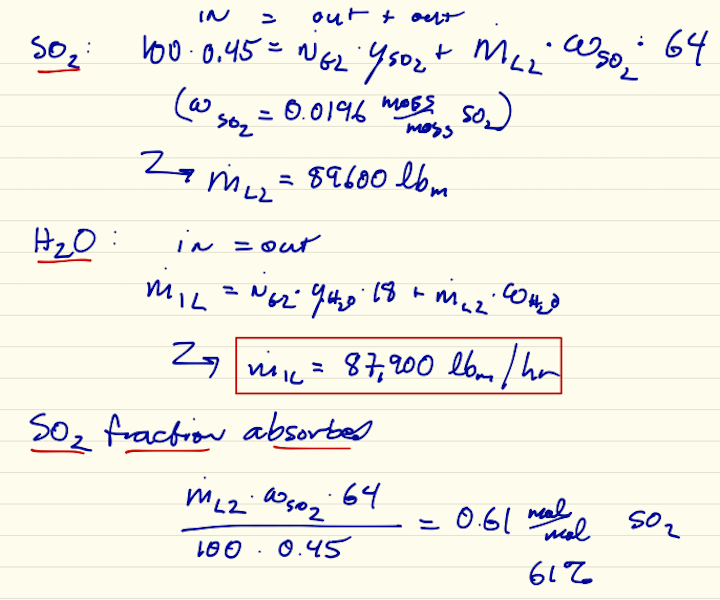 in = out + out
SO₂: 100 · 0.45 = ṄG2 · ySO₂ + ṁL2 · ωSO₂ · 64
(ωSO₂ = 0.0196 mass/mass SO₂)
↳ ṁL2 = 89600 lbm
H₂O: in = out
ṁ1L = ṄG2 · yH₂O · 18 + ṁL2 · ωH₂O
↳ ṁ1L = 87,900 lbm/hr
SO₂ fraction absorbed
ṁL2 · ωSO₂ · 64 / 100 · 0.45 = 0.61 mol/mol SO₂
61%